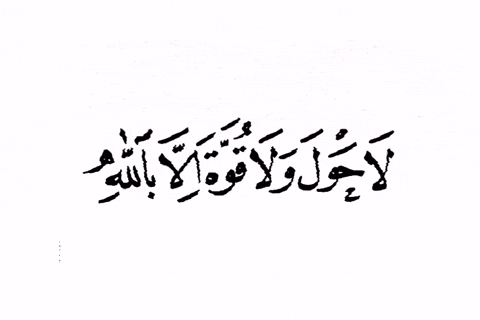 لَا حَوْلَ وَلَا قُوَّةَ اِلَّا بِاللّٰهِ